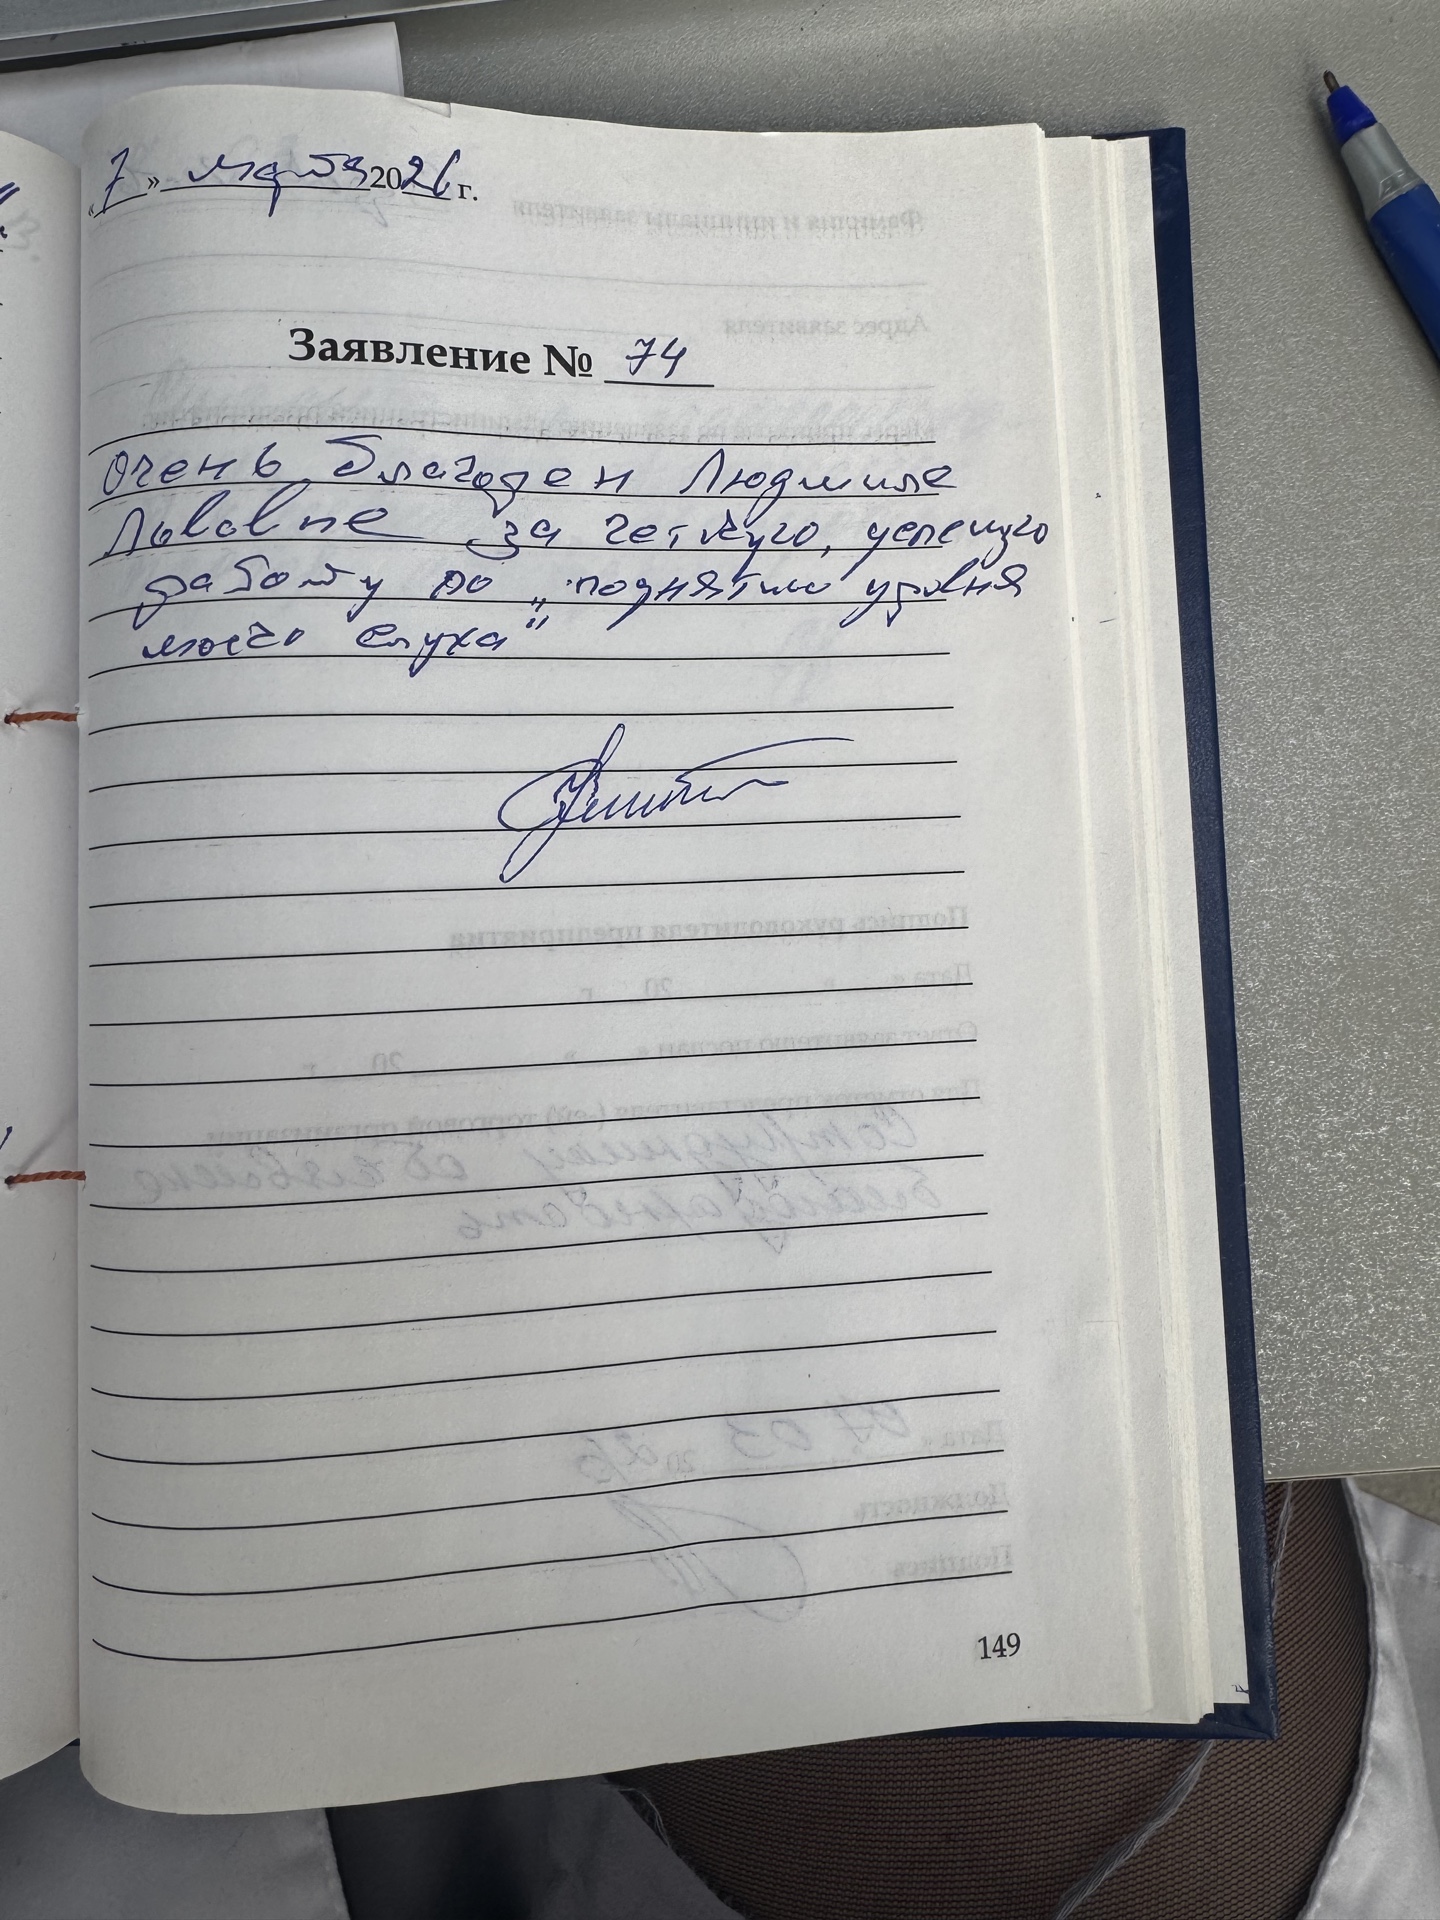 «7» марта 2026 г.
Заявление № 74
Очень благодарен Людмиле
Львовне за четкую, успешную
работу по „поднятию уровня
моего слуха"
149